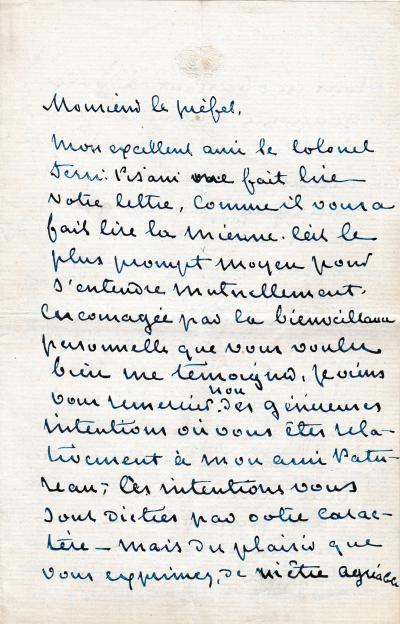 Monsieur le préfet,
Mon excellent ami le colonel
Ferri. Pisani me fait lire
votre lettre, comme il vous a
fait lire la mienne. C'est le
plus prompt moyen pour
s'entendre mutuellement.
Encouragée par la bienveillance
personnelle que vous voulez
bien me témoigner, je viens
vous remercier, non des généreuses
intentions où vous êtes rela-
tivement à mon ami Patu-
reau; ces intentions vous
sont dictées par votre carac-
tère – mais du plaisir que
vous exprimez, de m'être agréable